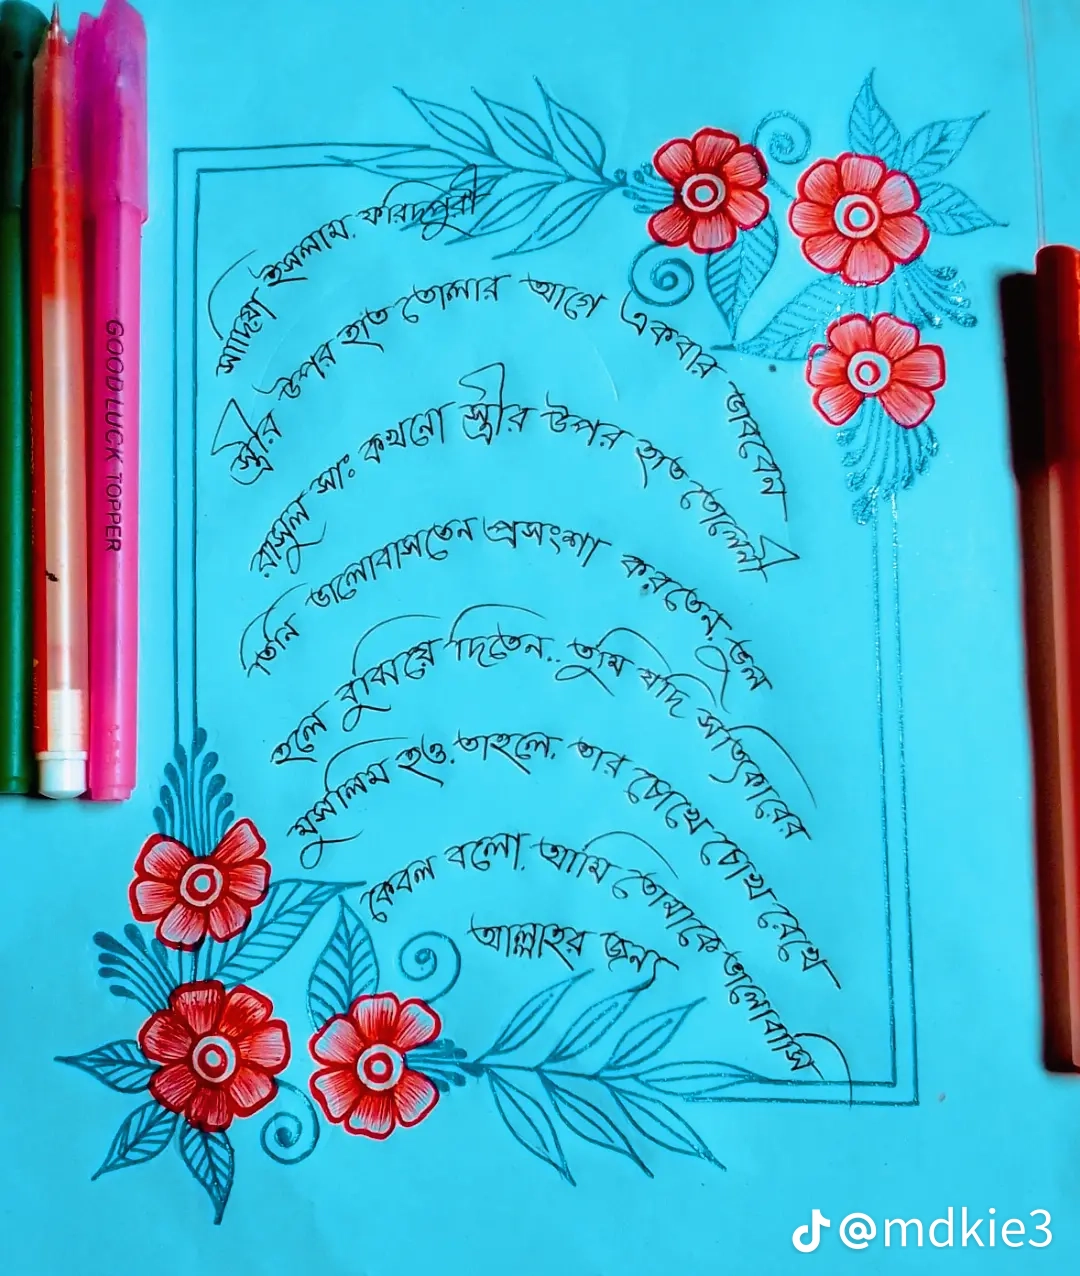 সাদিয়া ইসলাম. ফরিদপুরী
স্ত্রীর উপর হাত তোলার আগে একবার ভাববেন
রাসুল সাঃ কখনো স্ত্রীর উপর হাত তোলেনী
তিনি ভালোবাসতেন প্রসংশা করতেন. ভুল
হলে বুঝিয়ে দিতেন.. তুমি যদি সত্যিকারের
মুসলিম হও. তাহলে. তার চোখে চোখ রেখে
কেবল বলো. আমি তোমাকে ভালোবাসি
আল্লাহর জন্য
GOOD LUCK TOPPER
@mdkie3